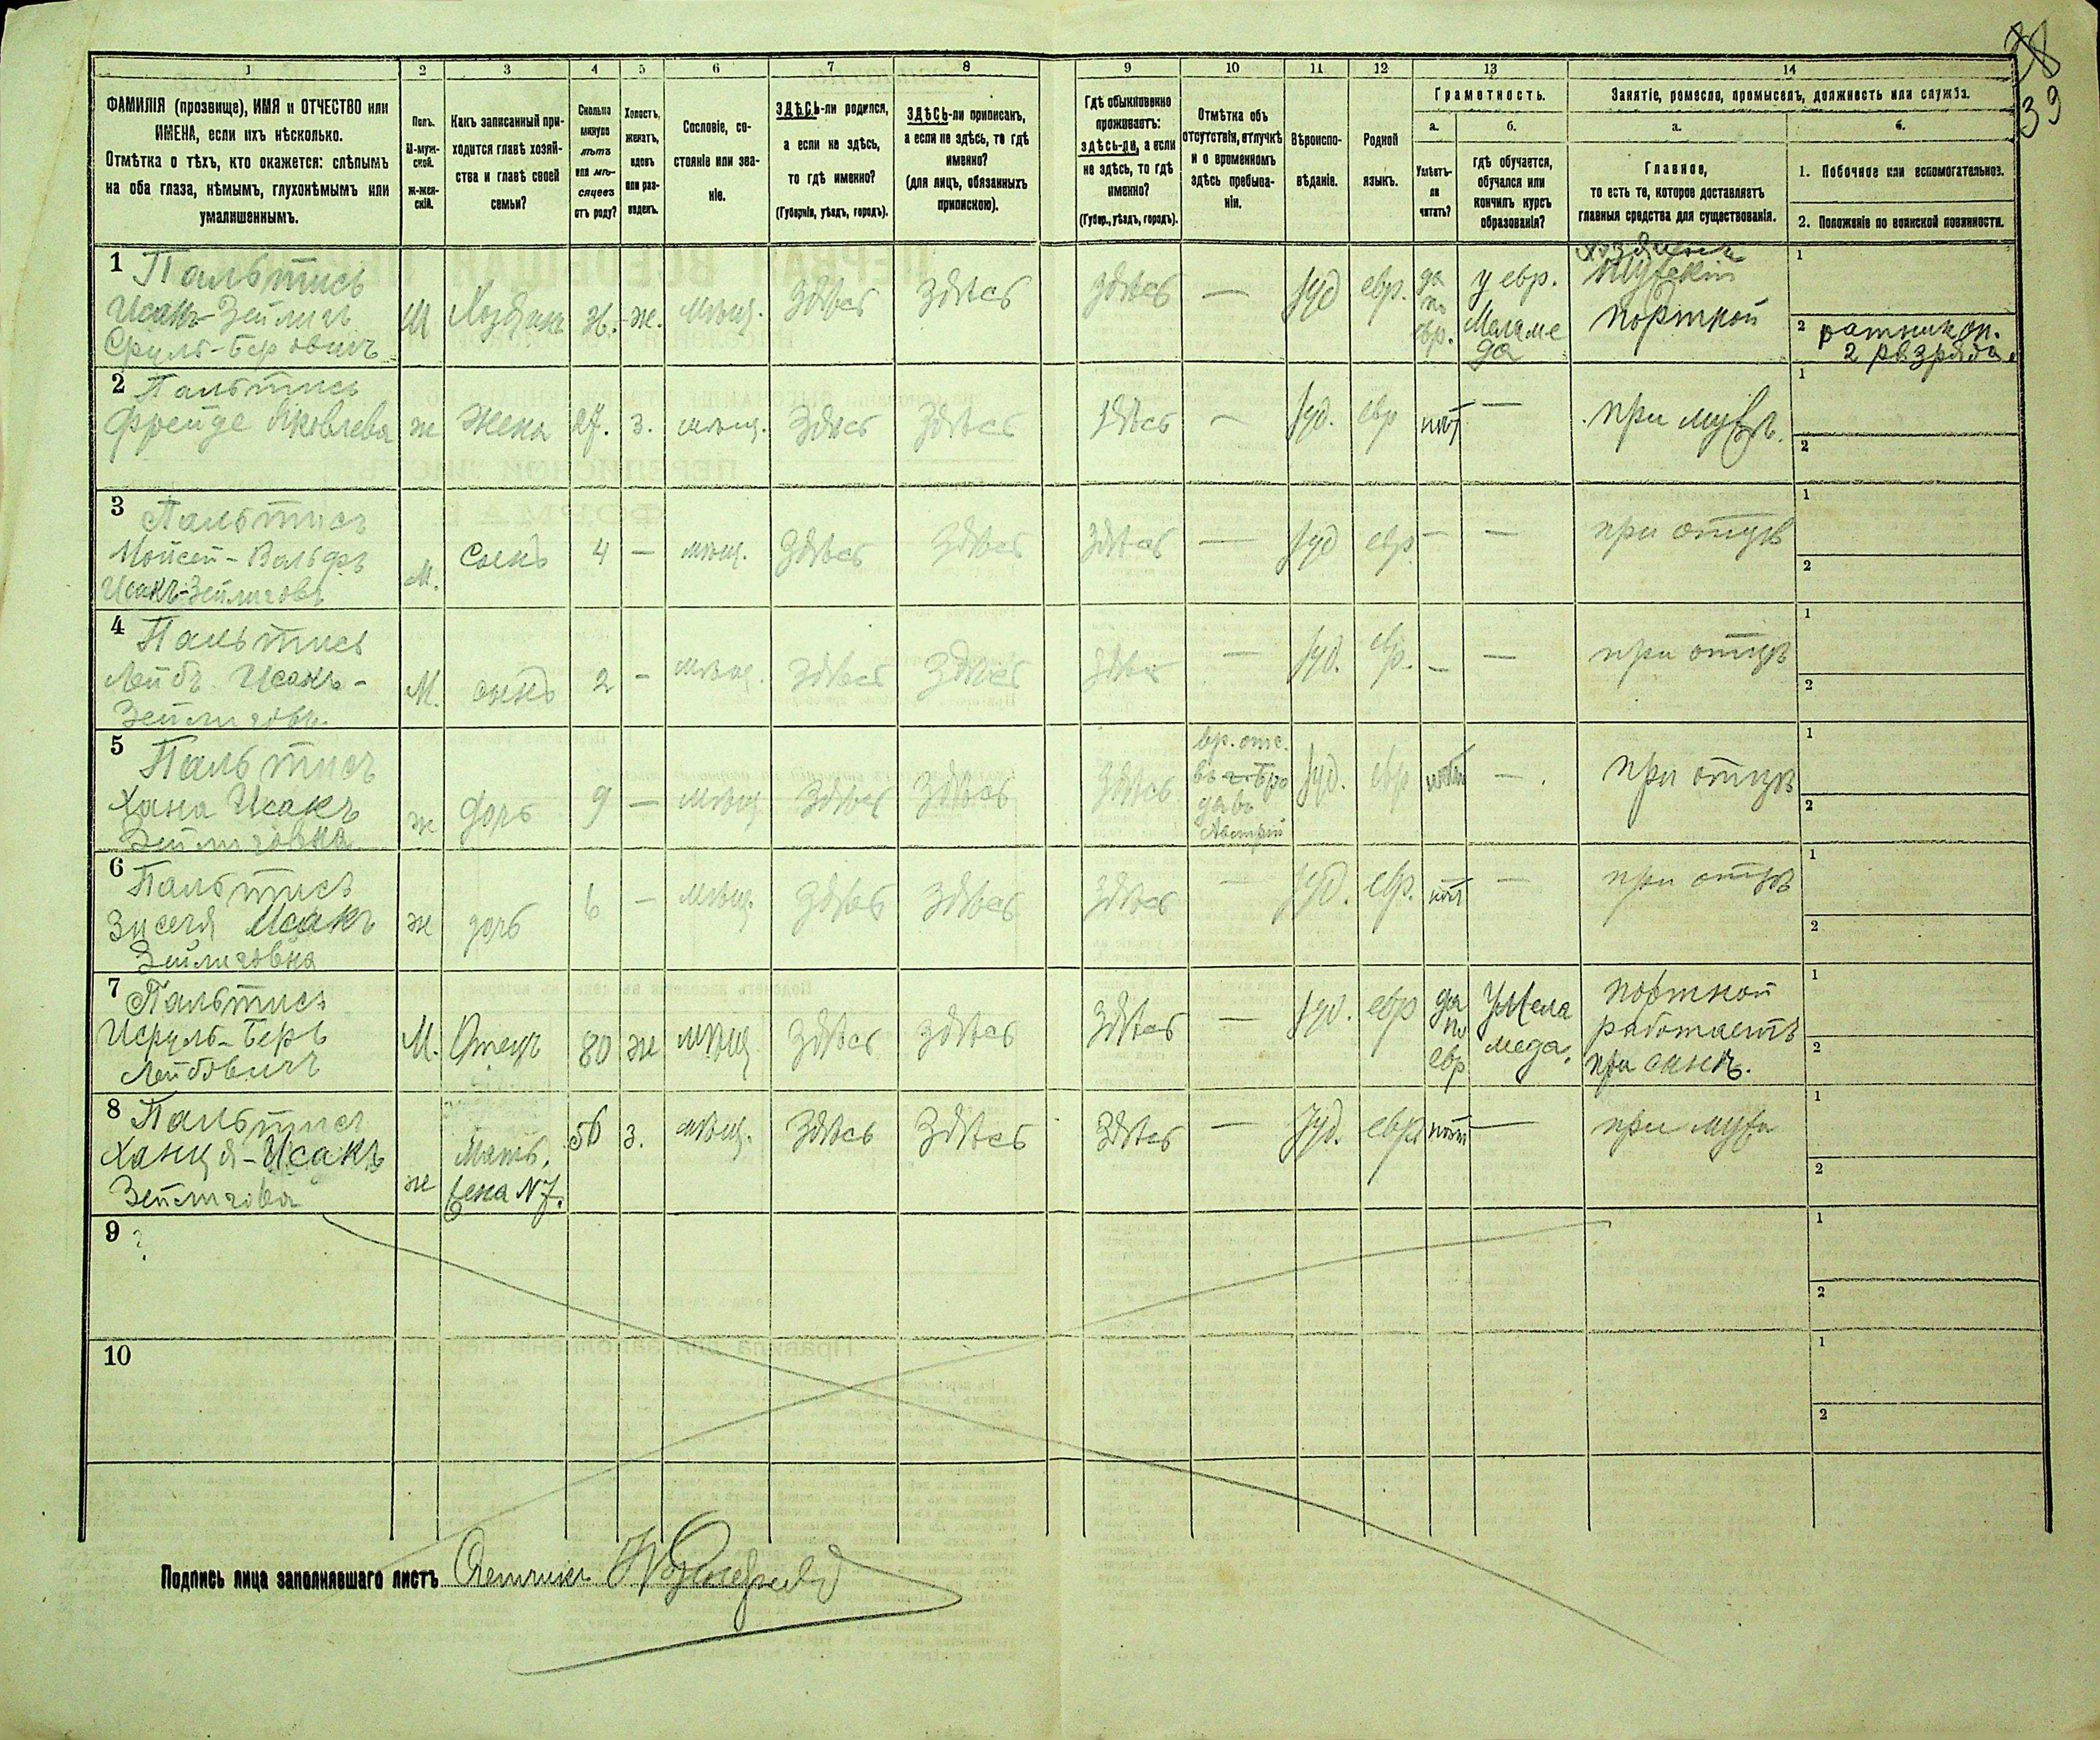 38
39
1
2
3
4
5
6
7
8
9
10
11
12
13
14
ФАМИЛІЯ (прозвище), ИМЯ и ОТЧЕСТВО или
ИМЕНА, если ихъ нѣсколько.
Отмѣтка о тѣхъ, кто окажется: слѣпымъ
на оба глаза, нѣмымъ, глухонѣмымъ или
умалишеннымъ.
Полъ.
М-муж-
ской.
Ж-жен-
скій.
Какъ записанный при-
ходится главѣ хозяй-
ства и главѣ своей
семьи?
Сколько
минуло
лѣтъ
или мѣ-
сяцевъ
отъ роду?
Холостъ,
женатъ,
вдовъ
или раз-
веденъ.
Сословіе, со-
стояніе или зва-
ніе.
ЗДѢСЬ-ли родился,
а если не здѣсь,
то гдѣ именно?
(Губернія, уѣздъ, городъ).
ЗДѢСЬ-ли приписанъ,
а если не здѣсь, то гдѣ
именно?
(для лицъ, обязанныхъ
припискою).
Гдѣ обыкновенно
проживаетъ:
здѣсь-ли, а если
не здѣсь, то гдѣ
именно?
(Губер., уѣздъ, городъ).
Отмѣтка объ
отсутствіи, отлучкѣ
и о временномъ
здѣсь пребыва-
ніи.
Вѣроиспо-
вѣданіе.
Родной
языкъ.
Грамотность.
а.
Умѣетъ-
ли
читать?
б.
гдѣ обучается,
обучался или
кончилъ курсъ
образованія?
Занятіе, ремесло, промыселъ, должность или служба.
а.
Главное,
то есть то, которое доставляетъ
главныя средства для существованія.
б.
1. Побочное или вспомогательное.
2. Положеніе по воинской повинности.
1 Пальтись
Исакъ-Зейлигъ
Сруль-Беровичъ
М
Хозяинъ
ж.
мѣщ.
здѣсь
здѣсь
здѣсь
—
Іуд
евр.
да
по
евр.
у евр.
Меламе
да
портной
1
2 ратник оп.
2 разряда.
2 Пальтись
Фрейде Яковлева
ж
жена
27.
з.
мѣщ.
здѣсь
здѣсь
здѣсь
—
Іуд.
евр
нѣт
—
при мужѣ.
1
2
3 Пальтись
Мойсей-Вольфъ
Исакъ-Зейлиговъ
М.
Сынъ
4
—
мѣщ.
здѣсь
здѣсь
здѣсь
—
Іуд
евр.
—
—
при отцѣ
1
2
4 Пальтись
Лейбъ Исакъ-
Зейлиговъ
М.
сынъ
2
—
мѣщ.
здѣсь
здѣсь
здѣсь
—
Іуд.
евр.
—
—
при отцѣ
1
2
5 Пальтись
Хана Исакъ
Зейлиговна
ж
дочь
9
—
мѣщ
здѣсь
здѣсь
здѣсь
вр. отс.
Австріи
Іуд.
евр
нѣт
—
при отцѣ
1
2
6 Пальтись
Зисля Исакъ
Зейлиговна
ж
дочь
6
—
мѣщ.
здѣсь
здѣсь
здѣсь
—
Іуд.
евр.
нѣт
—
при отцѣ
1
2
7 Пальтись
Исруль-Беръ
Лейбовичъ
М.
Отецъ
80
ж
мѣщ
здѣсь
здѣсь
здѣсь
—
Іуд.
евр
да
по
евр
у Мела
меда.
портной
работаетъ
при сынѣ.
1
2
8 Пальтись
Ханця-Исакъ
Зейлигова
ж
Мать,
жена №7.
56
з.
мѣщ.
здѣсь
здѣсь
здѣсь
—
Іуд.
евр.
нѣт
—
при мужѣ
1
2
9 ?
1
2
10
1
2
Подпись лица заполнявшаго листъ Счетчикъ